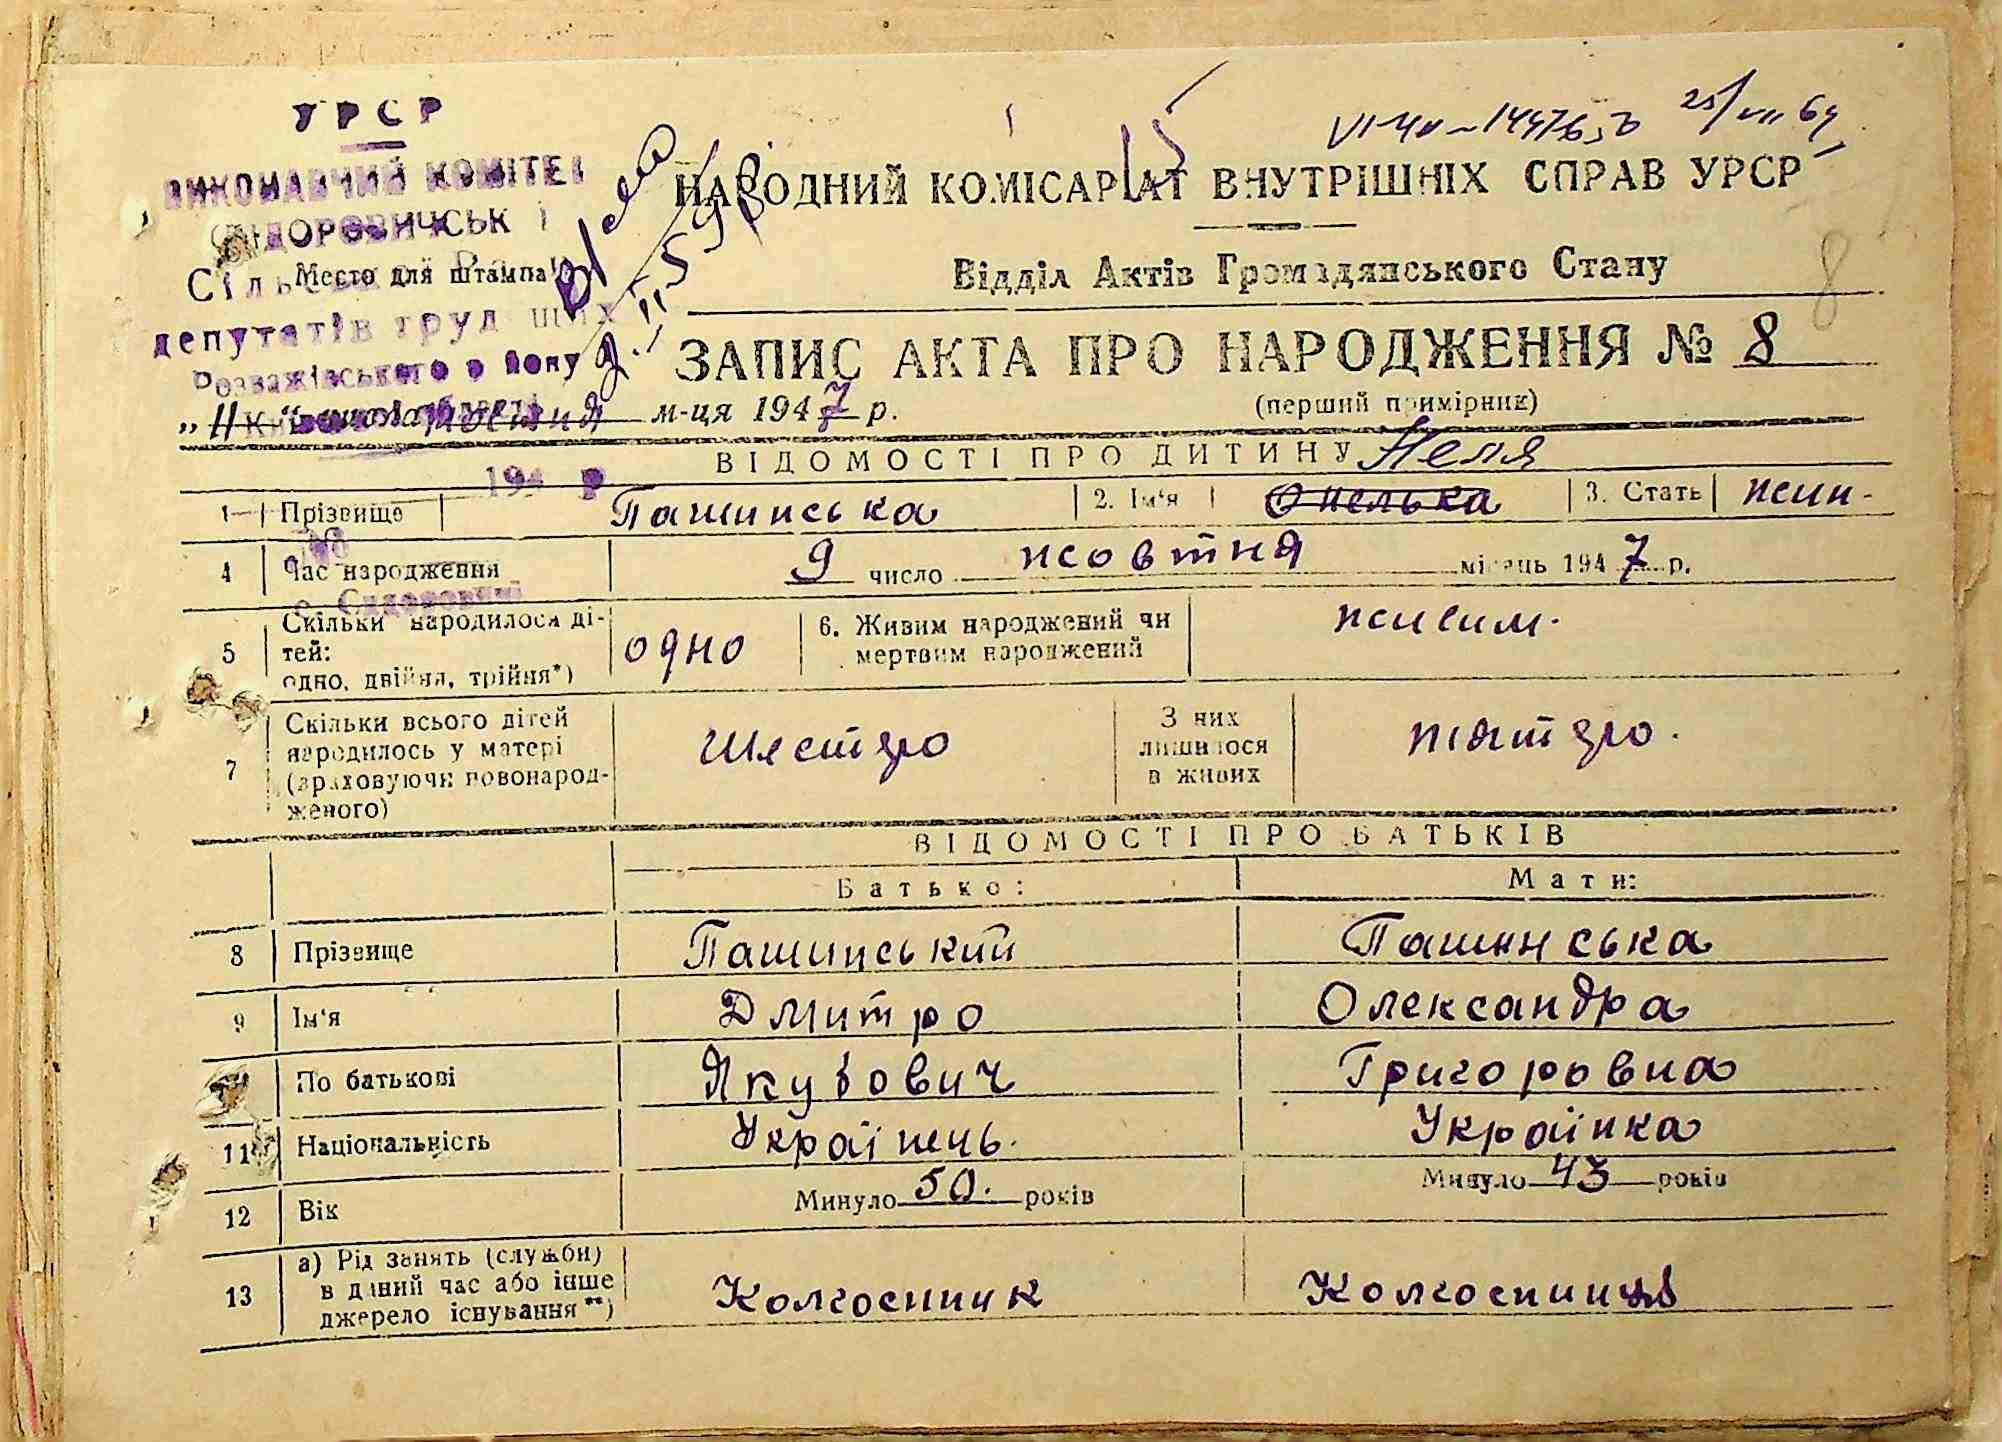 УРСР
ВИКОНАВЧИЙ КОМІТЕТ
СИДОРОВИЧСЬК
Сільської
Место для штампа
депутатів труд щих
Розважівського
VI-ЧЮ-144765 25/VII 69
НАРОДНИЙ КОМІСАРІАТ ВНУТРІШНІХ СПРАВ УРСР
Відділ Актів Громадянського Стану
8
ЗАПИС АКТА ПРО НАРОДЖЕННЯ № 8
(перший примірник)
„11“ жовтня м-ця 1947 р.
194 р
ВІДОМОСТІ ПРО ДИТИНУ Неля
1 Прізвище Пашинська 2. Ім‘я Онелька 3. Стать жін-
4 Час народження 9 число жовтня місяць 1947 р.
с. Сидоровичі
5 Скільки народилося ді-
тей:
одно, двійня, трійня*) одно 6. Живим народжений чи
мертвим народжений живим.
7 Скільки всього дітей
народилось у матері
(враховуючи новонарод-
женого) шестеро З них
лишилося
в живих пятеро.
ВІДОМОСТІ ПРО БАТЬКІВ
Батько: Мати:
8 Прізвище Пашинський Пашинська
9 Ім‘я Дмитро Олександра
По батькові Якубович Григоровна
11 Національність Українець. Українка
12 Вік Минуло 50. років Минуло 43 років
13 а) Рід занять (служби)
в даний час або інше
джерело існування**) Колгоспник Колгоспниця